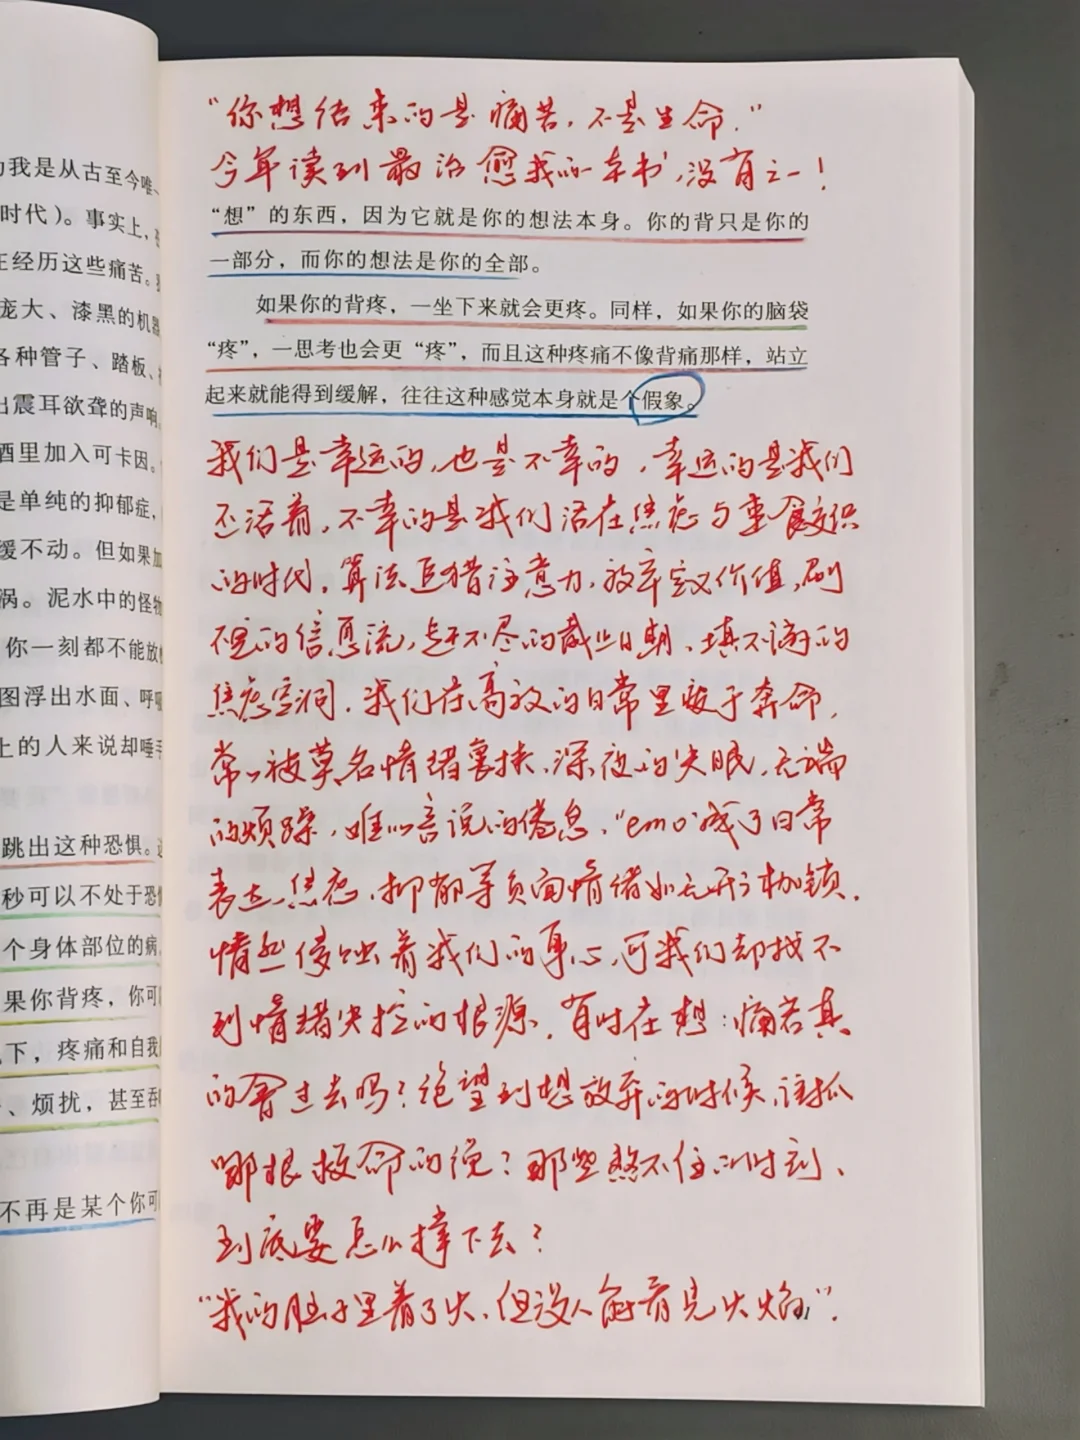 为我是从古至今唯一
时代）。事实上，
在经历这些痛苦。
庞大、漆黑的机器
各种管子、踏板、
出震耳欲聋的声响
酒里加入可卡因。
是单纯的抑郁症，
缓不动。但如果加
涡。泥水中的怪物
你一刻都不能放
图浮出水面、呼吸
上的人来说却唾手
跳出这种恐惧。
秒可以不处于恐惧
个身体部位的病
果你背疼，你可
下，疼痛和自我
、烦扰，甚至吞
不再是某个你可
“你想结束的是痛苦，不是生命。”
今年读到最治愈我的一本书，没有之一！
“想”的东西，因为它就是你的想法本身。你的背只是你的
一部分，而你的想法是你的全部。
如果你的背疼，一坐下来就会更疼。同样，如果你的脑袋
“疼”，一思考也会更“疼”，而且这种疼痛不像背痛那样，站立
起来就能得到缓解，往往这种感觉本身就是个假象。
我们是幸运的，也是不幸的，幸运的是我们
还活着，不幸的是我们活在焦虑与重叠交织
的时代，算法追猎注意力，放弃定义价值，刷
不完的信息流，赶不尽的截止日期、填不满的
焦虑空洞，我们在高效的日常里疲于奔命，
常常被莫名情绪裹挟、深夜的失眠，无端
的烦躁，难以言说的倦怠，“emo”成了日常
表达，焦虑、抑郁等负面情绪如无形枷锁，
悄然侵蚀着我们的身心，可我们却找不
到情绪失控的根源，有时在想：痛苦真
的会过去吗？绝望到想放弃的时候，该抓
哪根救命的绳？那些熬不住的时刻、
到底要怎么撑下去？
“我的肚子里着了火，但没人能看见火焰”。